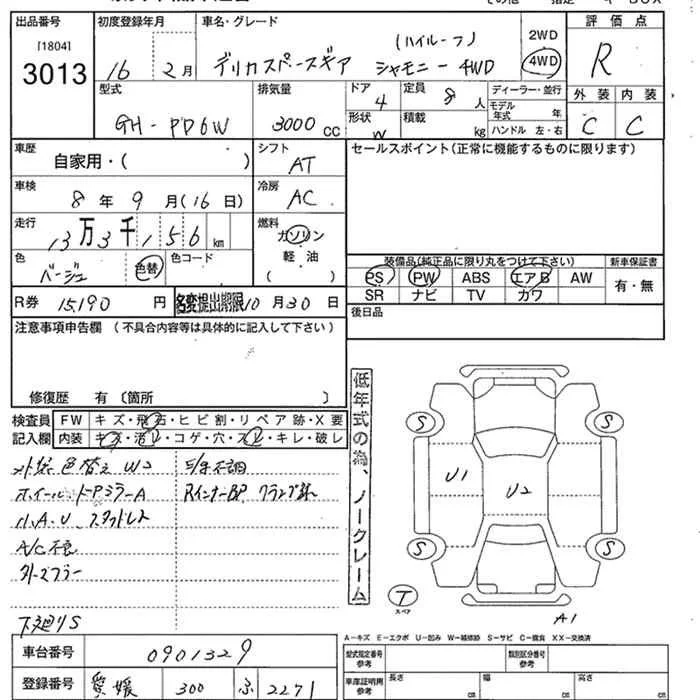 出品番号
[1804]
3013
初度登録年月
16 2月
車名・グレード
(ハイルーフ)
デリカスペースギア シャモニー 4WD
2WD
4WD
評価点
R
外装 内装
C C
型式
GH-PD6W
排気量
3000 CC
ドア
4
形状
W
定員
8 人
積載
kg
ディーラー・並行
モデル年式 年
ハンドル 左・右
車歴
自家用・( )
シフト
AT
車検
8年 9月(16日)
冷房
AC
走行
13万3千156 km
燃料
ガソリン
軽油
( )
色
ベージュ
色替
色コード
R券 15,190 円
名変提出期限 10月30日
セールスポイント(正常に機能するものに限ります)
装備品(純正品に限り丸をつけて下さい)
PS PW ABS エアB AW
SR ナビ TV カワ
新車保証書
有・無
後日品
注意事項申告欄 (不具合内容等は具体的に記入して下さい)
修復歴 有 〔箇所 〕
検査員記入欄
FW キズ・飛石・ヒビ割・リペア跡・X要
内装 キズ・汚レ・コゲ・穴・スレ・キレ・破レ
外装色替え W2
ホイール、ドアミラーA
A/C不良
下廻りS
低年式の為、ノークレーム
S S
U1
U2
S S
T
スペア
A1
A-キズ E-エクボ U-凹み W-補修跡 S-サビ C-腐食 XX-交換済
車台番号 0901329
登録番号 愛媛 300 ふ 2271
型式指定番号
参考
類別区分番号
参考
車庫証明用
参考
長さ cm
幅 cm
高さ cm